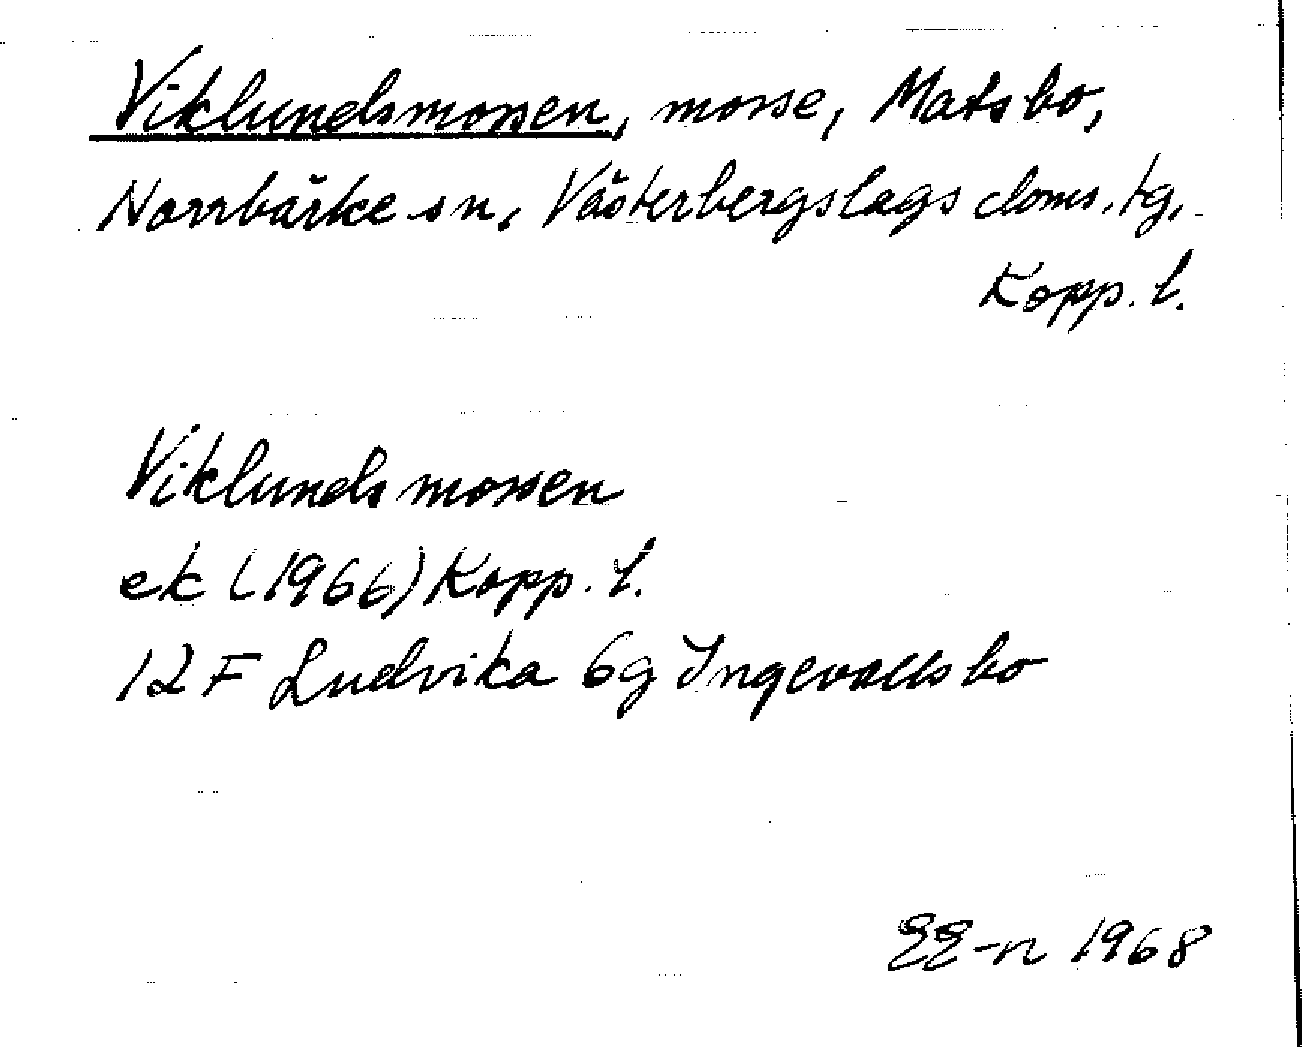 Viklundsmossen, mosse, Matsbo,
Norrbärke sn, Västerbergslags doms. tg,
Kopp. l.
Viklundsmossen
ek (1966) Kopp. l.
12 F Ludvika 6g Ingevallsbo
EE-n 1968